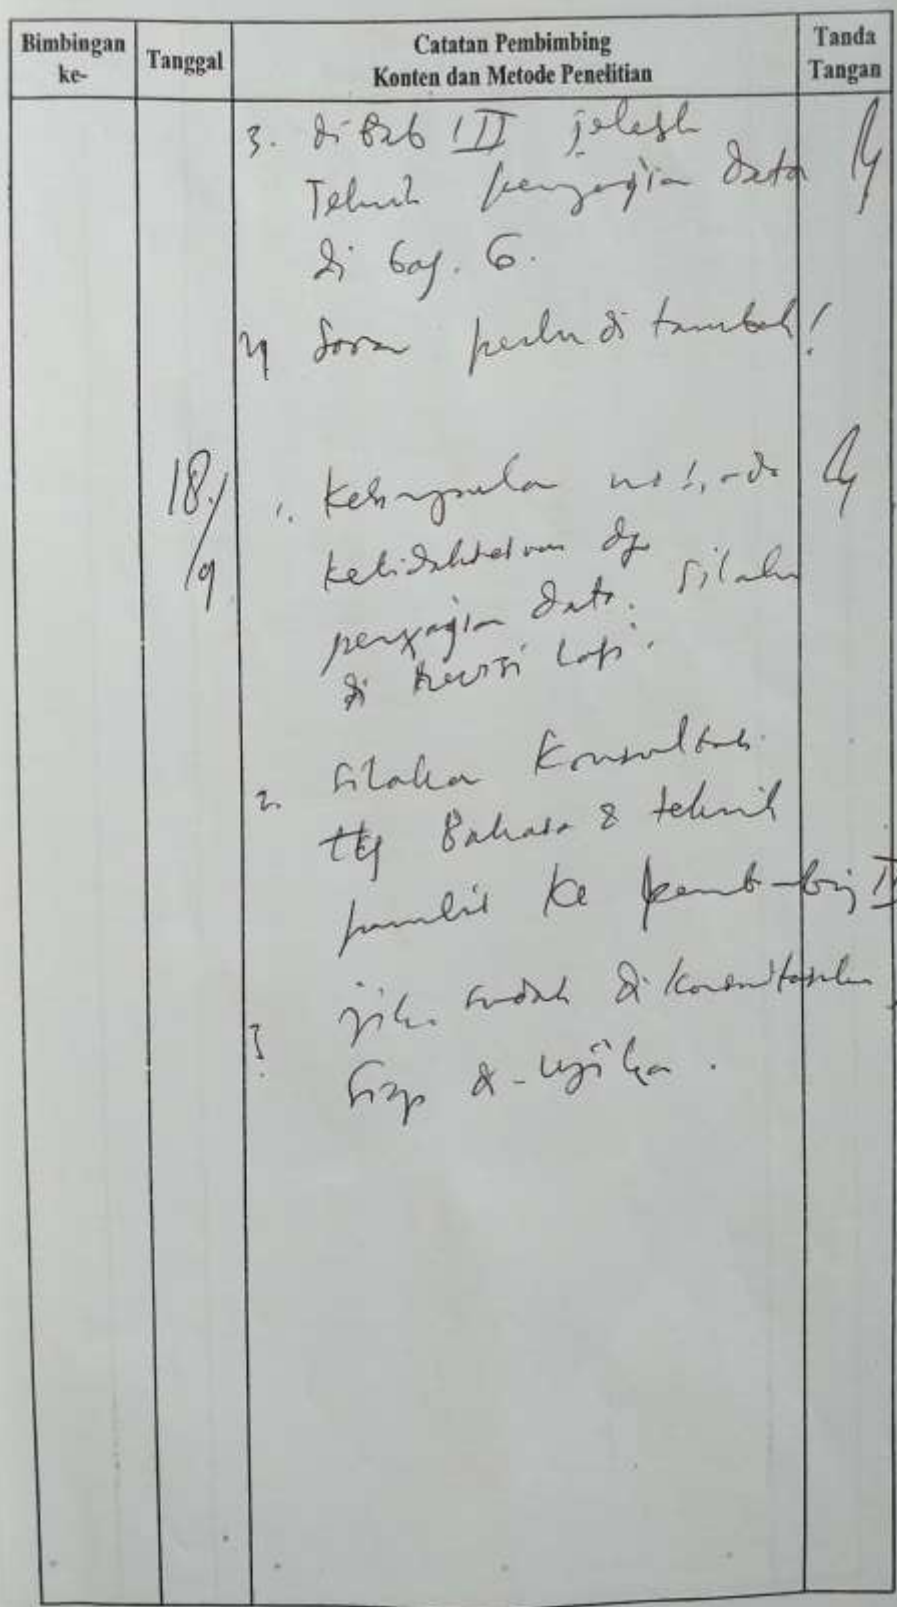 Bimbingan ke-
Tanggal
Catatan Pembimbing
Konten dan Metode Penelitian
Tanda Tangan
3. di Bab III
Teknik penyajian data
di bag. 6.
4 perlu di tambah!
18/9
1. Kesimpulan no 1, ada
dg
penyajian data. Silakan
di revisi lagi.
2. Silakan Konsultasi
ttg Bahasa & teknik
ke pembimbing II
3. jika sudah di konsultasikan
Siap di-ujikan.